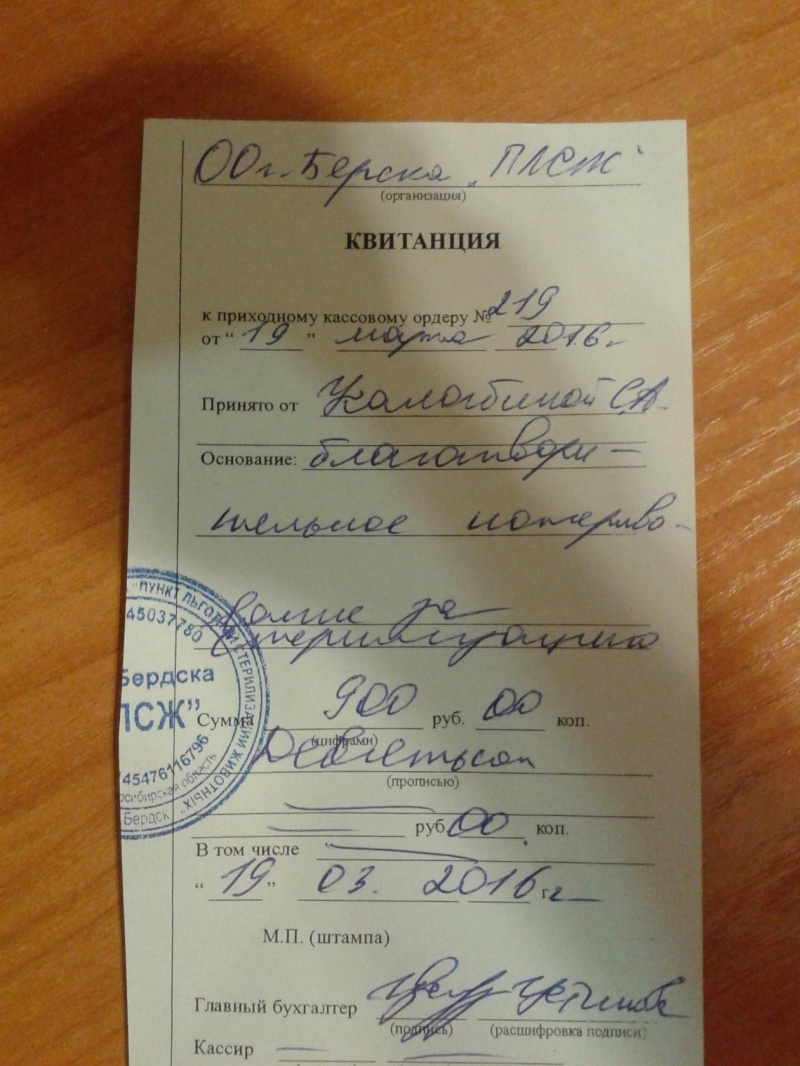 ОО г. Берска „ПЛСЖ"
(организация)
КВИТАНЦИЯ
к приходному кассовому ордеру № 219
от “ 19 ” марта 2016 г.
Принято от С.А.
Основание: благотвори-
тельное пожертво-
вание за
стерилизацию
Сумма 900 руб. 00 коп.
(цифрами)
Девятьсот
(прописью)
руб. 00 коп.
В том числе
“ 19 ” 03. 2016 г.
М.П. (штампа)
Главный бухгалтер
(подпись) (расшифровка подписи)
Кассир
"ПУНКТ ЛЬГОТНОЙ СТЕРИЛИЗАЦИИ ЖИВОТНЫХ"
45037780
Бердска
ЛСЖ"
45476116796
осибирская область
Бердск